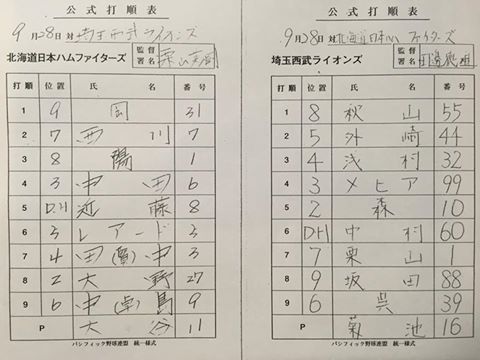 公式打順表
9月28日 対 埼玉西武ライオンズ
北海道日本ハムファイターズ 監督署名 栗山英樹
打順 位置 氏名 番号
1 9 岡 31
2 7 西川 7
3 8 陽 1
4 3 中田 6
5 D.H 近藤 8
6 5 レアード 5
7 4 田(賢)中 3
8 2 大野 27
9 6 中(卓)島 9
P 大谷 11
パシフィック野球連盟 統一様式
公式打順表
9月28日 対 北海道日本ハムファイターズ
埼玉西武ライオンズ 監督署名 田邊徳雄
打順 位置 氏名 番号
1 8 秋山 55
2 5 外崎 44
3 4 浅村 32
4 3 メヒア 99
5 2 森 10
6 DH 中村 60
7 7 栗山 1
8 9 坂田 88
9 6 呉 39
P 菊池 16
パシフィック野球連盟 統一様式